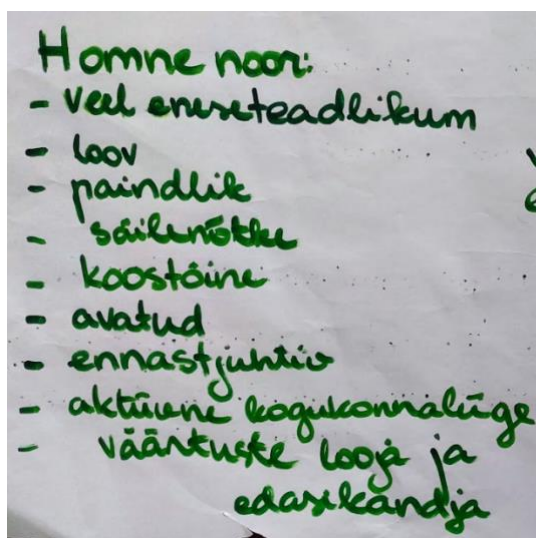 Homne noor:
- veel eneseteadlikum
- loov
- paindlik
- säilenõtke
- koostöine
- avatud
- ennastjuhtiv
- aktiivne kogukonnaliige
- väärtuste looja ja
edasikandja